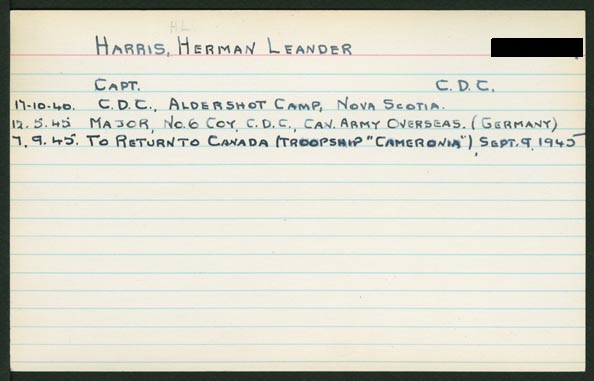 HL
HARRIS, HERMAN LEANDER
CAPT. C.D.C.
17-10-40. C.D.C., ALDERSHOT CAMP, NOVA SCOTIA.
12.5.45 MAJOR, NO.6 COY, C.D.C., CAN. ARMY OVERSEAS. (GERMANY)
7.9.45. TO RETURN TO CANADA (TROOPSHIP "CAMERONIA"), SEPT. 9, 1945